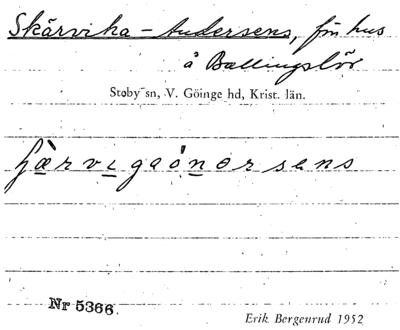 Skärvika-Andersens, fm hus
å Ballingslöv
Stoby sn, V. Göinge hd, Krist. län.
Nr 5366.
Erik Bergenrud 1952